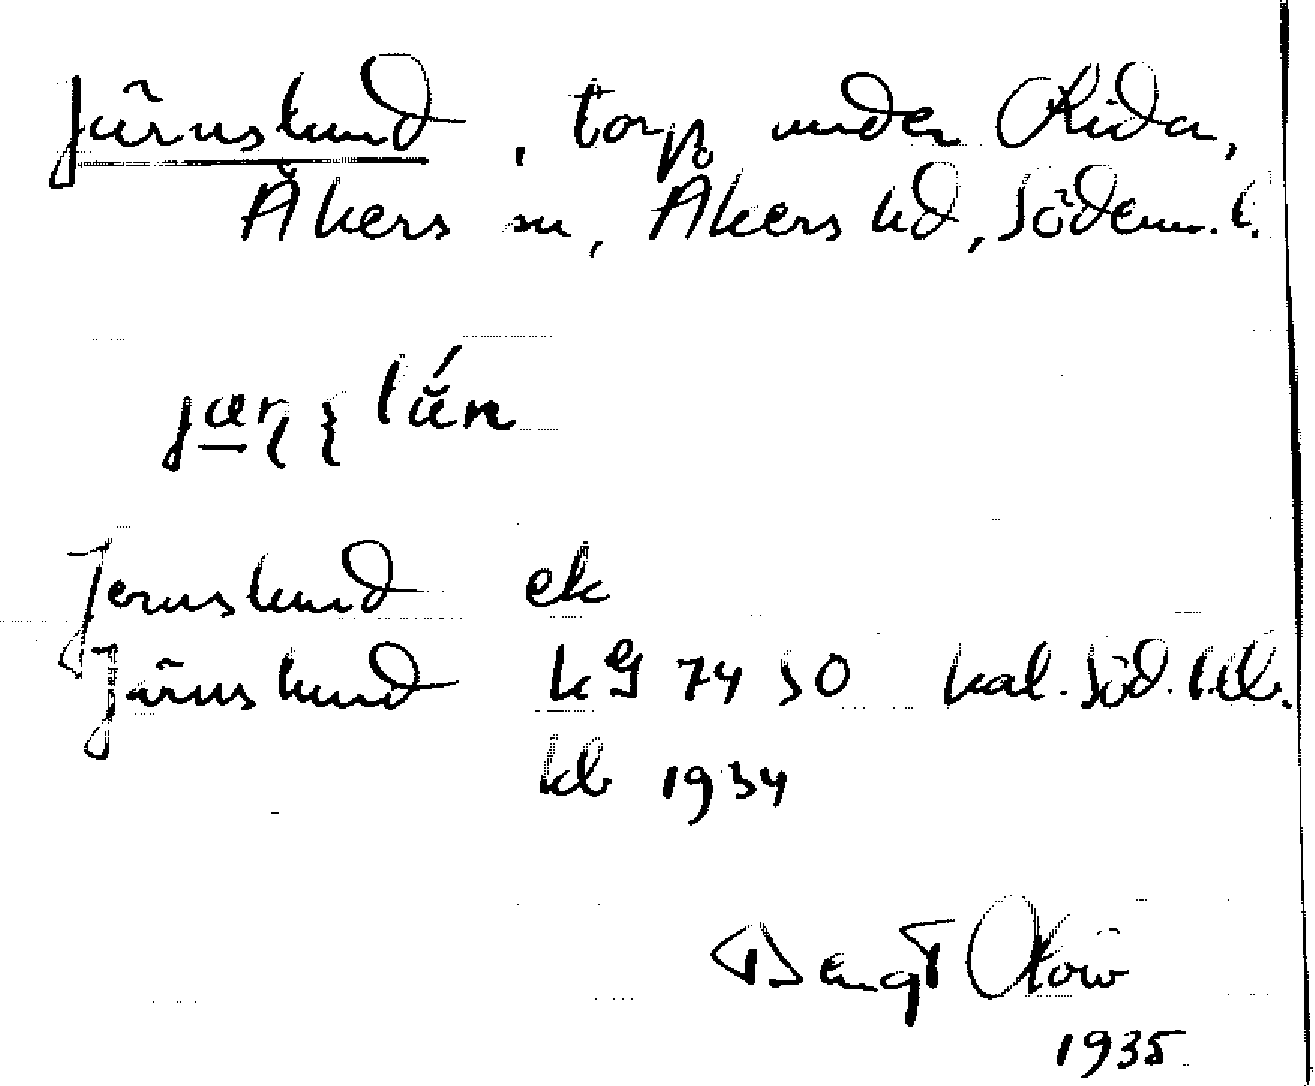 Järnslund, torp under Rida,
Åkers sn, Åkers hd, Söderm. l.
Jernslund ek
Järnslund kg 74 50 kal. Söd. l.
kb 1934
Bengt
1935